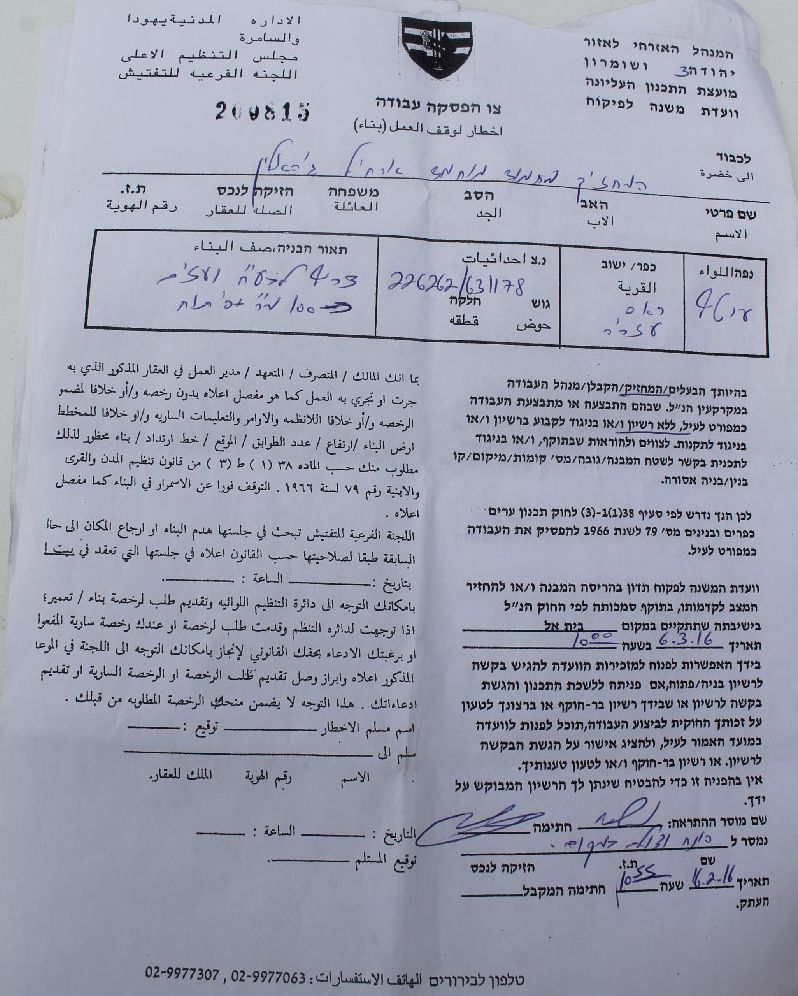 המנהל האזרחי לאזור
יהודה ושומרון
מועצת התכנון העליונה
וועדת משנה לפיקוח
الاداره المدنية يهودا
والسامرة
مجلس التنظيم الاعلى
اللجنه الفرعيه للتفتيش
200815
צו הפסקה עבודה
اخطار لوقف العمل (بناء)
לכבוד
الى حضرة
המחזיק מחמוד מוחמד
שם פרטי האב הסב משפחה הזיקה לנכס ת.ז.
الاسم الاب الجد العائلة الصله للعقار رقم الهوية
נפה اللواء
כפר/ ישוב
القرية
נ.צ احداثيات
226262/631178
גוש חלקה
حوض قطعه
תאור הבניה, صف البناء
בהיותך הבעלים/המחזיק/הקבלן/מנהל העבודה
במקרקעין הנ"ל. שבהם התבצעה או מתבצעת העבודה
כמפורט לעיל, ללא רשיון ו/או בניגוד לקבוע ברשיון ו/או
בניגוד לתקנות. לצווים ולחוראות שבתוקף, ו/או בניגוד
לתכנית בקשר לשטח המבנה/גובה/מס' קומות/מיקום/קו
בנין/בניה אסורה.
לכן הנך נדרש לפי סעיף 38(1)-(3) לחוק תכנון ערים
כפרים ובנינים מס' 79 לשנת 1966 להפסיק את העבודה
כמפורט לעיל.
וועדת המשנה לפקוח תדון בהריסה המבנה ו/או להחזיר
המצב לקדמותו, בתוקף סמכותה לפי החוק הנ"ל
בישיבתה שתתקיים במקום בית אל
תאריך 6.3.16 בשעה 10:00
בידך האפשרות לפנות למזכירות הוועדה להגיש בקשה
לרשיון בניה/פתוח, אם פניתה ללשכת התכנון והגשת
בקשה לרשיון או שבידך רשיון בר-חוקף או ברצונך לטעון
על זכותך החוקית לביצוע העבודה, תוכל לפנות לוועדה
במועד האמור לעיל, ולהציג אישור על הגשת הבקשה
לרשיון. או רשיון בר-חוקף ו/או לטעון טענותיך.
אין בהפניה זו כדי להבטיח שינתן לך הרשיון המבוקש על
ידך.
שם מוסר ההתראה: חתימה
נמסר ל
שם ת.ז. הזיקה לנכס
תאריך 16.2.16 שעה 1055 חתימה המקבל
העתק.
بما انك المالك / المتصرف / المتعهد / مدير العمل في العقار المذكور الذي به
جرت او تجري به العمل كما هو مفصل اعلاه بدون رخصه و/أو خلافا لمضمو
الرخصه و/أو خلافا للانظمه والاوامر والتعليمات الساريه و/او خلافا للمخطط
ارض البناء /ارتفاع / عدد الطوابق / الموقع / خط ارتداد / بناء محظور لذلك
مطلوب منك حسب الماده ٣٨ (١) ط (٣) من قانون تنظيم المدن والقرى
والابنية رقم ٧٩ لسنة ١٩٦٦. التوقف فورا عن الاسمرار في البناء كما مفصل
اعلاه.
اللجنة الفرعية للتفتيش تبحث في جلستها هدم البناء او ارجاع المكان الى حاا
السابقة طبقا لصلاحيتها حسب القانون اعلاه في جلستها التي تعقد في بيت ا
بتاريخ: الساعة:
بامكانك التوجه الى دائرة التنظيم اللوائيه وتقديم طلب لرخصة بناء / تعمير؛
اذا توجهت لدائره التنظم وقدمت طلب لرخصة او عندك رخصة سارية المفعوا
او برغبتك الادعاء بحقك القانوني لإنجاز بامكانك التوجه الى اللجنة في الموعا
المذكور اعلاه وابراز وصل تقديم طلب الرخصة او الرخصة السارية او تقديم
ادعاءاتك. هذا التوجه لا يضمن منحك الرخصة المطلوبه من قبلك.
اسم مسلم الاخطار توقيع:
سلم الى
الاسم رقم الهوية الملك للعقار.
التاريخ: الساعة:
توقيع المستلم
טלפון לבירורים الهاتف الاستفسارات: 02-9977063, 02-9977307